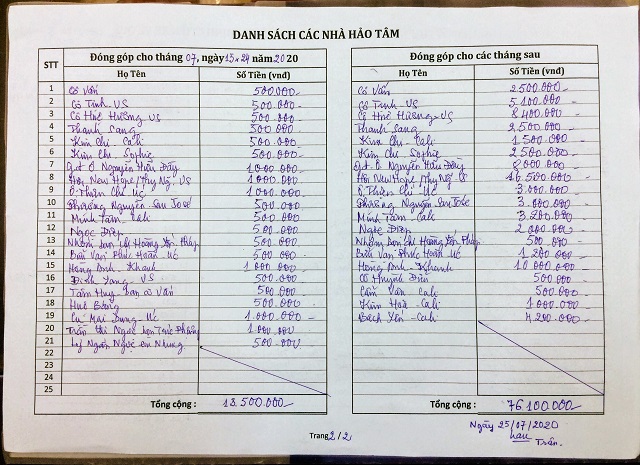 DANH SÁCH CÁC NHÀ HẢO TÂM
STT Đóng góp cho tháng 07, ngày 13 & 24 năm 2020
Họ Tên Số Tiền (vnđ)
1 Cô Vấn 500.000-
2 Cô Tính - US 500.000-
3 Cô Hoè Hương - US 500.000-
4 Thanh Sang 500.000-
5 Kim Chi - Cali 500.000-
6 Kim Chi - Sophie 500.000-
7 Gđ. Ô. Nguyễn Hữu Đây 1.000.000-
8 Hội New Hope/Thy Ng. US 1.000.000-
9 Ô. Thiện Chí Úc 1.000.000-
10 Phương Nguyễn San Jose 500.000-
11 Minh Tâm - Cali 500.000-
12 Ngọc Diệp 500.000-
13 Nhóm bạn chị Hoàng Yến Pháp 500.000-
14 Bùi Văn Phúc Hoàn - Úc 500.000-
15 Hồng Anh - Khanh 1.000.000-
16 Đinh US 500.000-
17 Tâm Huy bạn cô Vấn 500.000-
18 Huê 500.000-
19 Cự Mai Dung - Úc 1.000.000-
20 Trần thị Ngọc bạn Trúc Phương 1.000.000
21 Ngân em Nhung 500.000-
22
23
24
25
Tổng cộng : 13.500.000-
Đóng góp cho các tháng sau
Họ Tên Số Tiền (vnđ)
Cô Vấn 2.500.000-
Cô Tính - US 5.100.000-
Cô Hoè Hương - US 8.400.000-
Thanh Sang 2.500.000-
Kim Chi - Cali 1.500.000-
Kim Chi - Sophie 2.500.000-
Gđ. Ô. Nguyễn Hữu Đây 8.000.000-
Hội New Hope/Thy Ng. US 16.500.000-
Ô. Thiện Chí Úc 3.000.000-
Phương Nguyễn San Jose 3.000.000-
Minh Tâm - Cali 3.200.000-
Ngọc Diệp 2.000.000-
Nhóm bạn chị Hoàng Yến Pháp 500.000-
Bùi Văn Phúc Hoàn - Úc 1.200.000-
Hồng Anh - Khanh 10.000.000-
Cô Huỳnh Diên 500.000-
Cẩm Vân - Cali 500.000-
Kim Hoà - Cali 1.000.000-
Bạch Yến - Cali 4.200.000-
Tổng cộng : 76.100.000-
Trang 2 / 2
Ngày 25/07/2020
Trân.